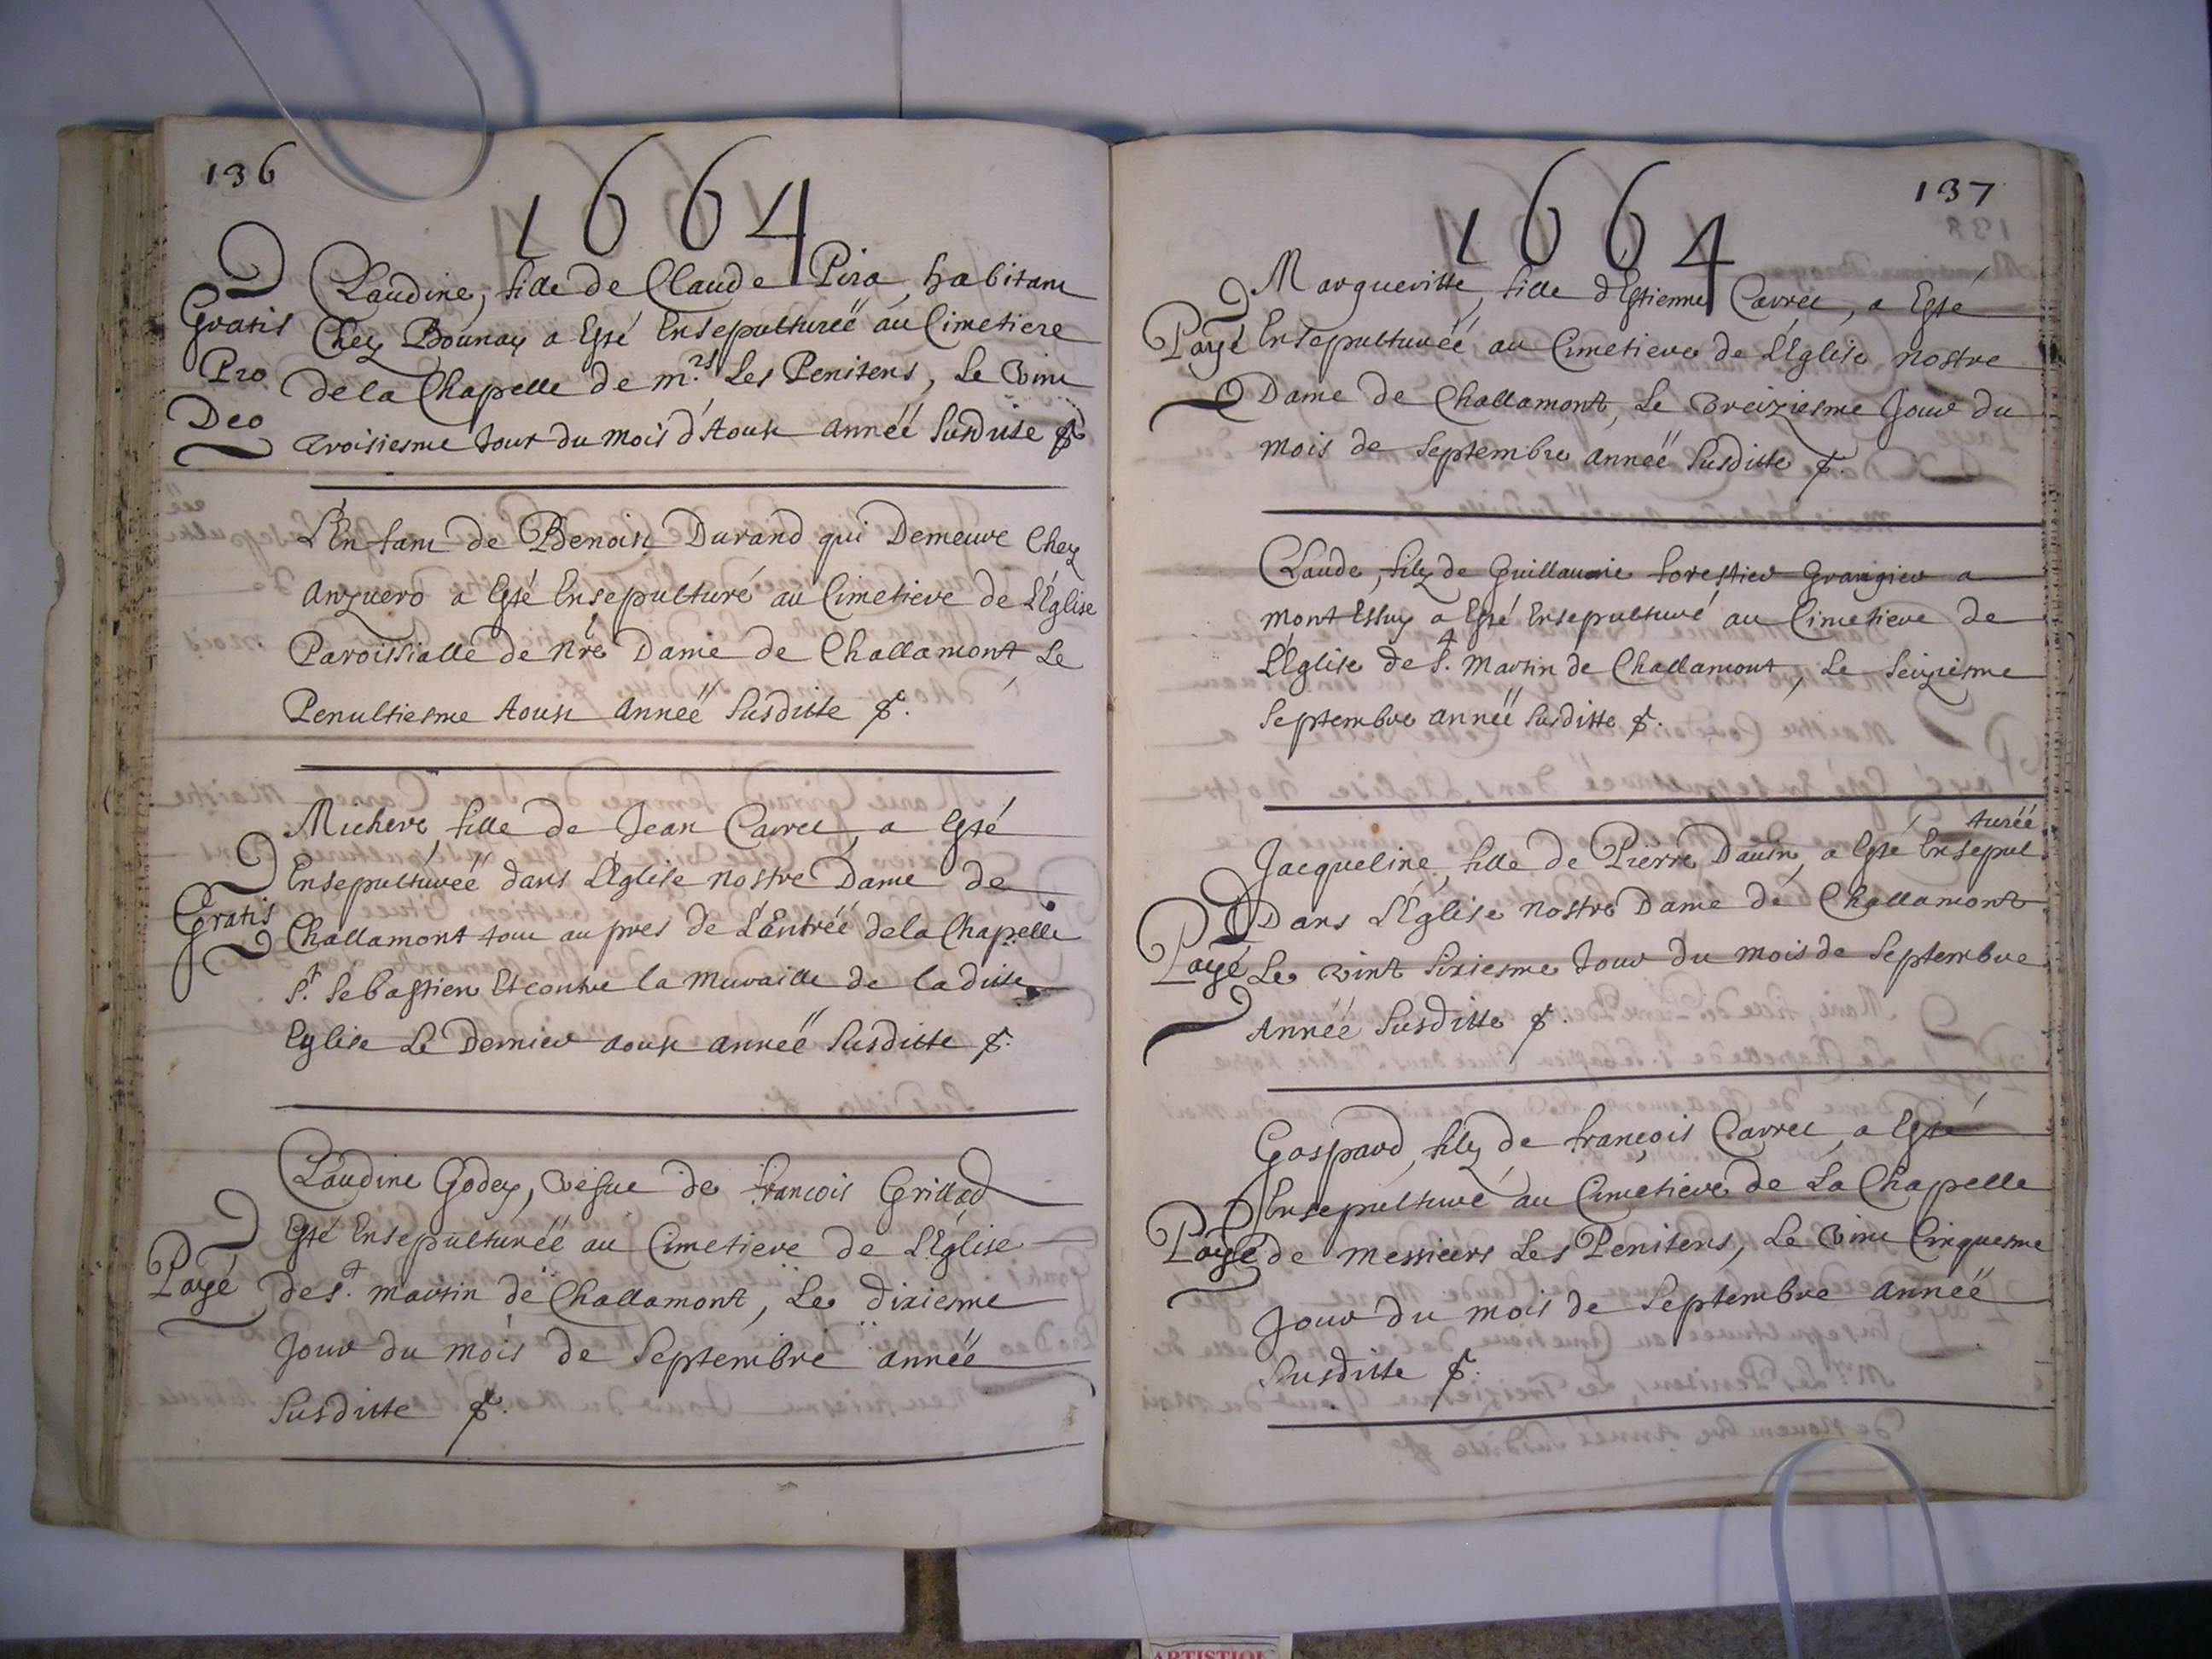 136
1664
Claudine, fille de Claude Pira, habitant
Gratis
Chez Bounay a Esté Ensepulturéë au Cimetiere
Pro
de la Chapelle de m.rs Les Penitens, Le Vint
Deo
troisiesme Jour du mois d'Aoust annéë Susditte
L'Enfant de Benoist Durand qui Demeure Chez
a Esté Ensepulturé au Cimetiere de L'Église
Paroissialle de nre Dame de Challamont Le
Penultiesme Aoust annéë Susditte
fille de Jean Carrel, a Esté
Ensepulturéë dans L'Église nostre Dame de
Gratis
Challamont tout aupres de L'Entréé de la Chapelle
St. Sebastien Et contre la muraille de laditte
Eglise Le Dernier aoust annéë Susditte
Claudine Godey, Vefue de francois Grillod
Esté Ensepulturéé au Cimetiere de L'Église
Payé
de St. martin de Challamont, Le dixiesme
Jour du mois de Septembre annéë
Susditte
137
1664
Margueritte, fille d'Estienne Carrel, a Esté
Payé
Ensepulturéé au Cimetiere de L'Église nostre
Dame de Challamont, Le treiziesme Jour du
mois de Septembre annéë Susditte
Claude, filz de Guillaume forestier Grangier a
mont Essuy a Esté Ensepulturé au Cimetiere de
L'Église de St. Martin de Challamont, Le Seiziesme
Septembre annéë Susditte
Jacqueline, fille de Pierre Dauin, a Esté Ensepul
turéé
Dans L'Église nostre Dame de Challamont
Payé
Le vint Sixiesme Jour du mois de Septembre
Annéé Susditte
Gaspard, filz de françois Carrel, a Esté
Ensepulturé au Cimetiere de La Chapelle
Payé
de messiers Les Penitens, Le Vint Cinquesme
Jour du mois de Septembre annéë
Susditte
ARTISTIQU